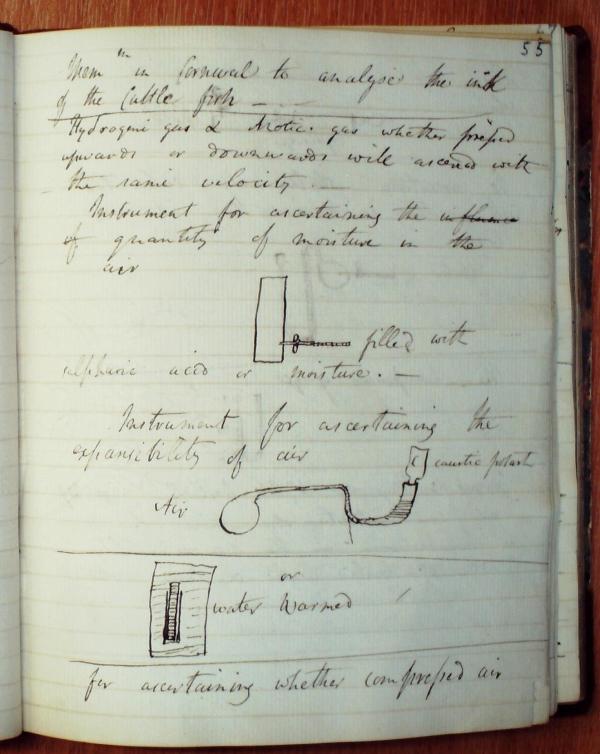 55
Mem^m in Cornwal to analyse the ink
of the Cuttle fish —
Hydrogene gas & Azotic gas whether pressed
upwards or downwards will ascend with
the same velocity —
Instrument for ascertaining the influence
of quantity of moisture in the
air
filled with
sulphuric acid or moisture. —
Instrument for ascertaining the
expansibility of air
caustic potash
Air
or
water warmed
for ascertaining whether compressed air